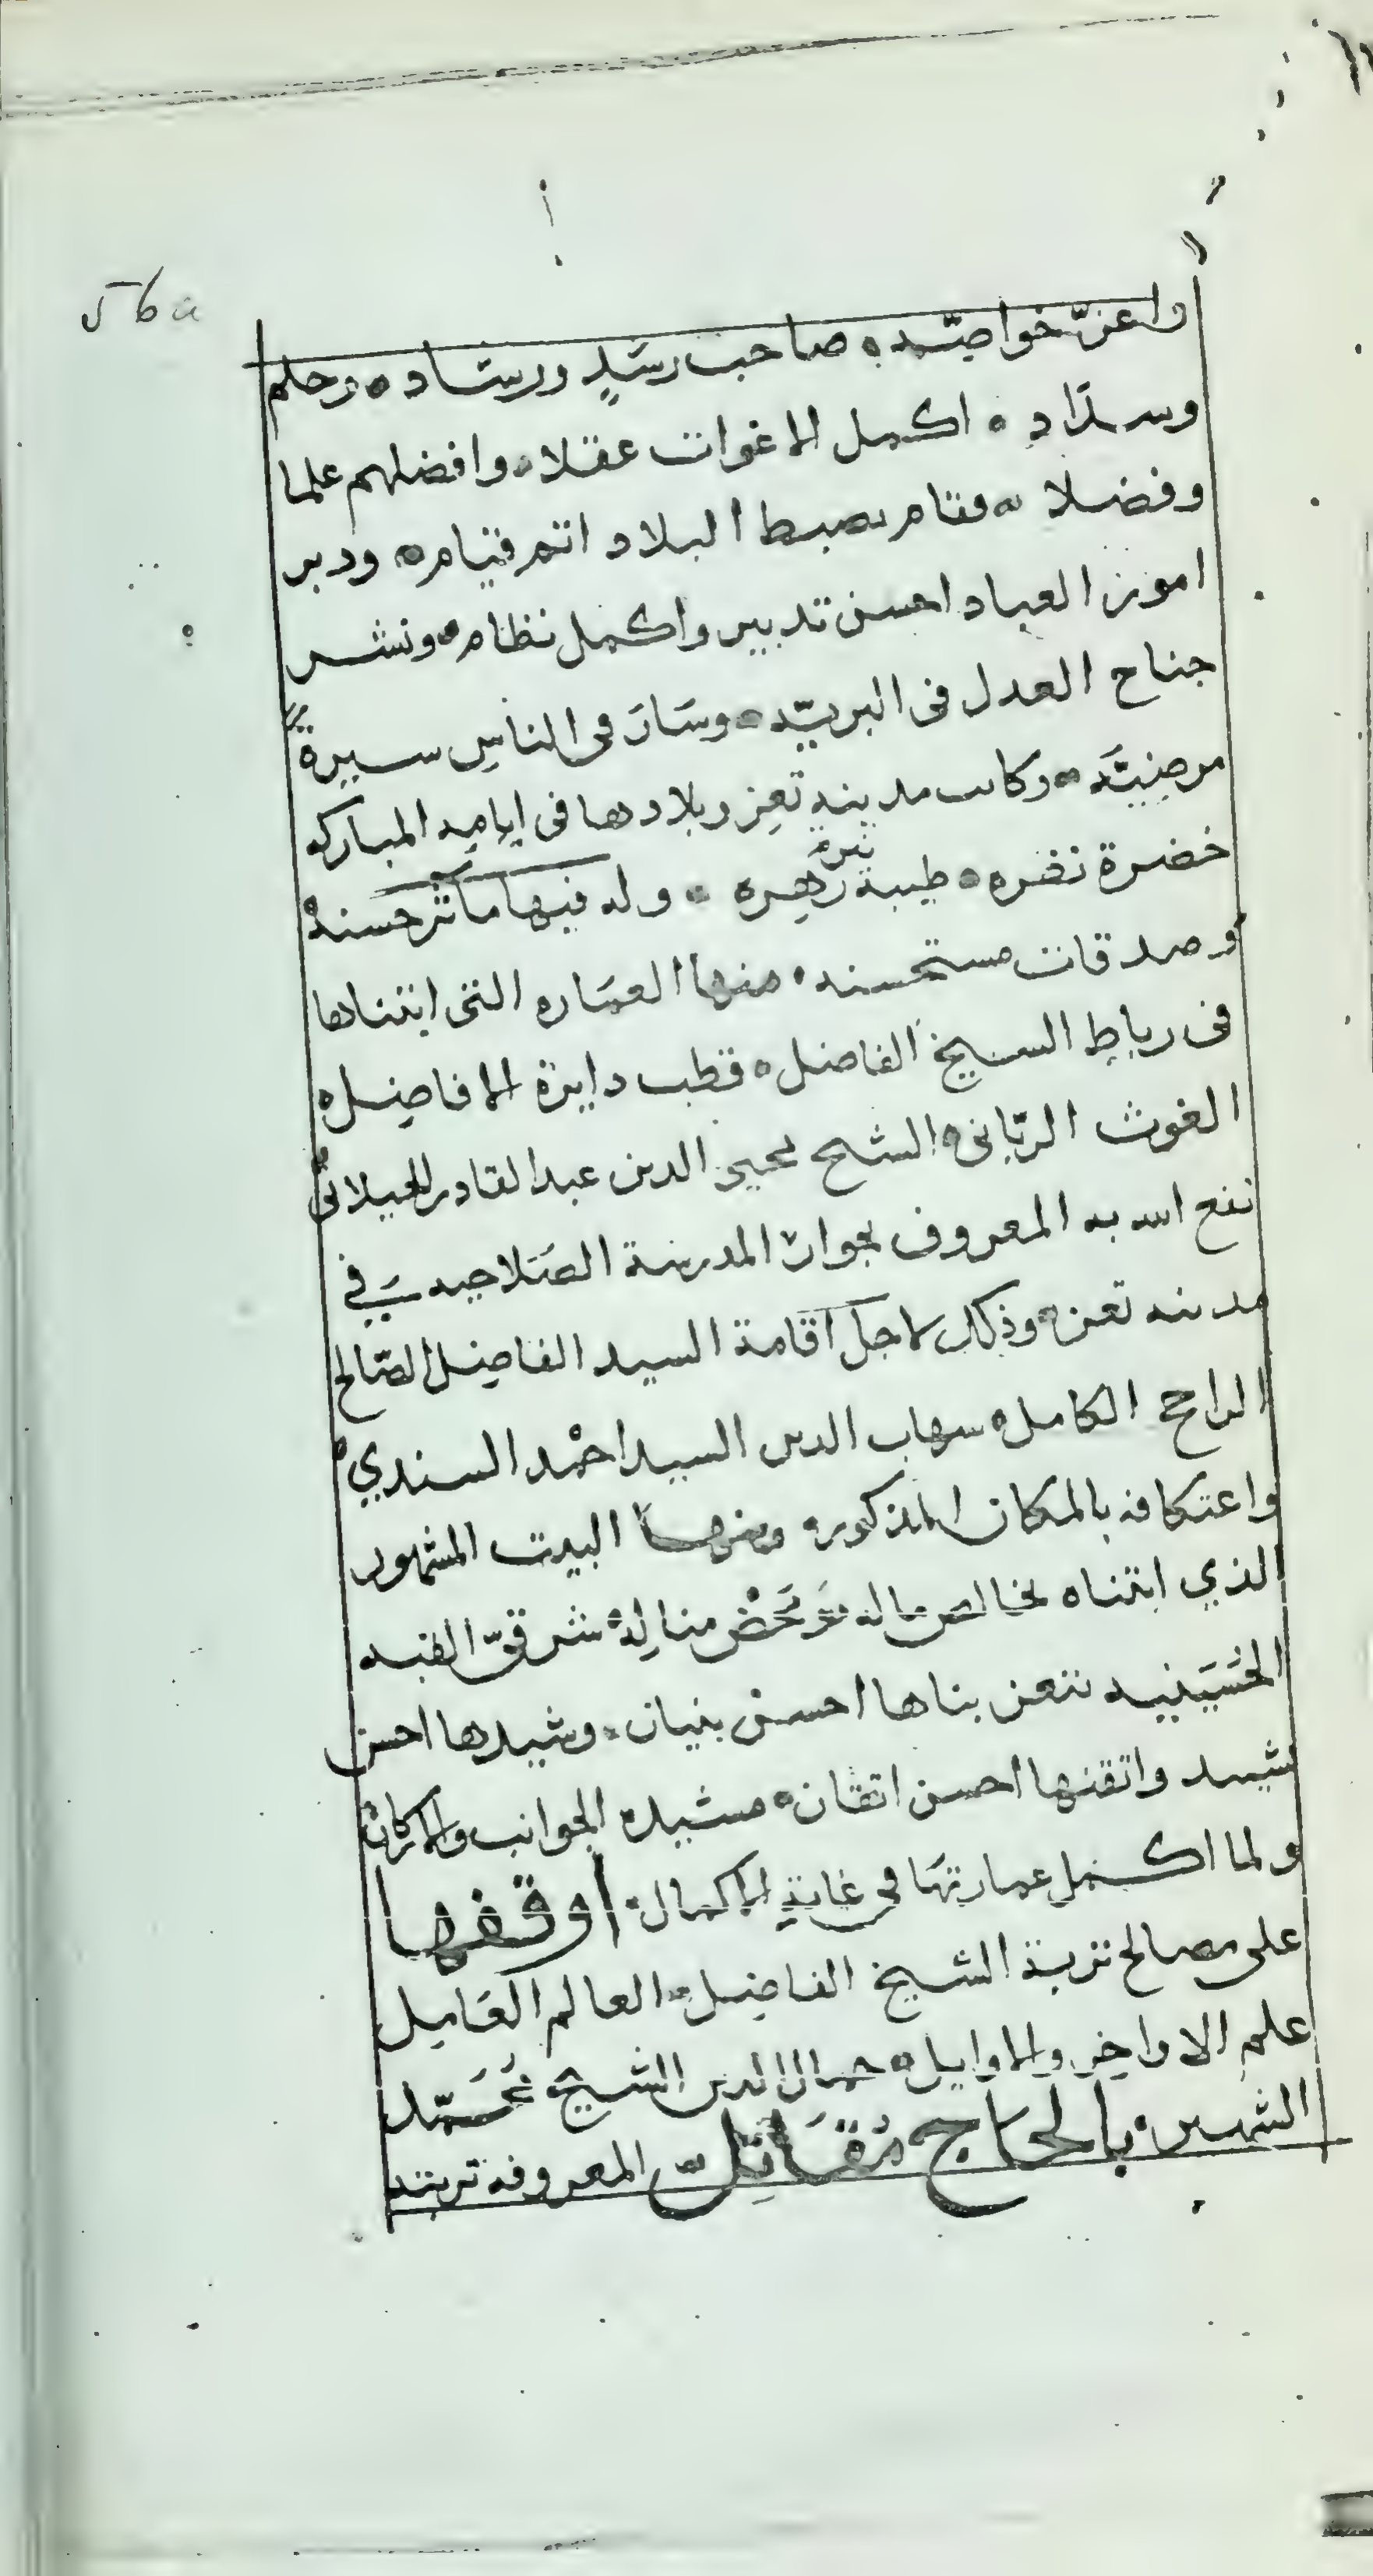 56a
واعزّ خواصّه ۰ صاحب رشدٍ ورشاد ۰ وحلم
وسدَادٍ ۰ اكمل الاغوات عقلا ۰ وافضلهم علما
وفضلا ۰ فقام بضبط البلاد اتم قيام ۰ ودبر
امور العباد احسن تدبير واكمل نظام ۰ ونشر
جناح العدل فى البريّه ۰ وسَارَ فى الناسِ سيرة
مرضيّه ۰ وكانت مدينه تعز وبلادها فى ايامه المباركه
خضرة نضره ۰ طيبة زهره ۰ وله فيها مآثر حسنه
وصدقات مستحسنه ۰ منها العمَاره التى ابتناها
فى رباط الشيخ الفاضل ۰ قطب دايرة الافاضل ۰
الغوث الربّانى ۰ الشيخ محيى الدين عبد القادر الجيلانى
نفع الله به المعروف بجوار المدرسة الصَلاحيه في
مدينه تعز ۰ وذلك لاجل اقامة السيد الفاضل الصّالح
الراجح الكامل ۰ شهاب الدين السيد احمد السندي ۰
واعتكافه بالمكان المذكور ۰ ومنها البيت المشهور
الذي ابتناه بخالص ماله ۰ وَمَحْض منالِه ۰ شرقىّ القبه
الحُسَينيه بتعز بناها احسن بنيان ۰ وشيدها احسن
تشييد واتقنها احسن اتقان ۰ مشيده الجوانب والاركان ۰
ولما اكمل عمارتهَا فى غاية الاكمال ۰ اوقفها
على مصالح تربة الشيخ الفاضل ۰ العالم العَامِل
علم الاواخر والاوايل ۰ جمال الدين الشيخ مُحَمّد
الشهير بالحَاج مُقَاتِل المعروفه تربته